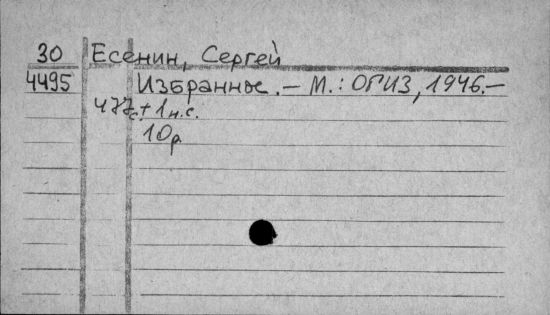 30 Есенин, Сергей
4495 Избранное. – М.: ОГИЗ, 1946. –
477с. + 1 н.с.
10р